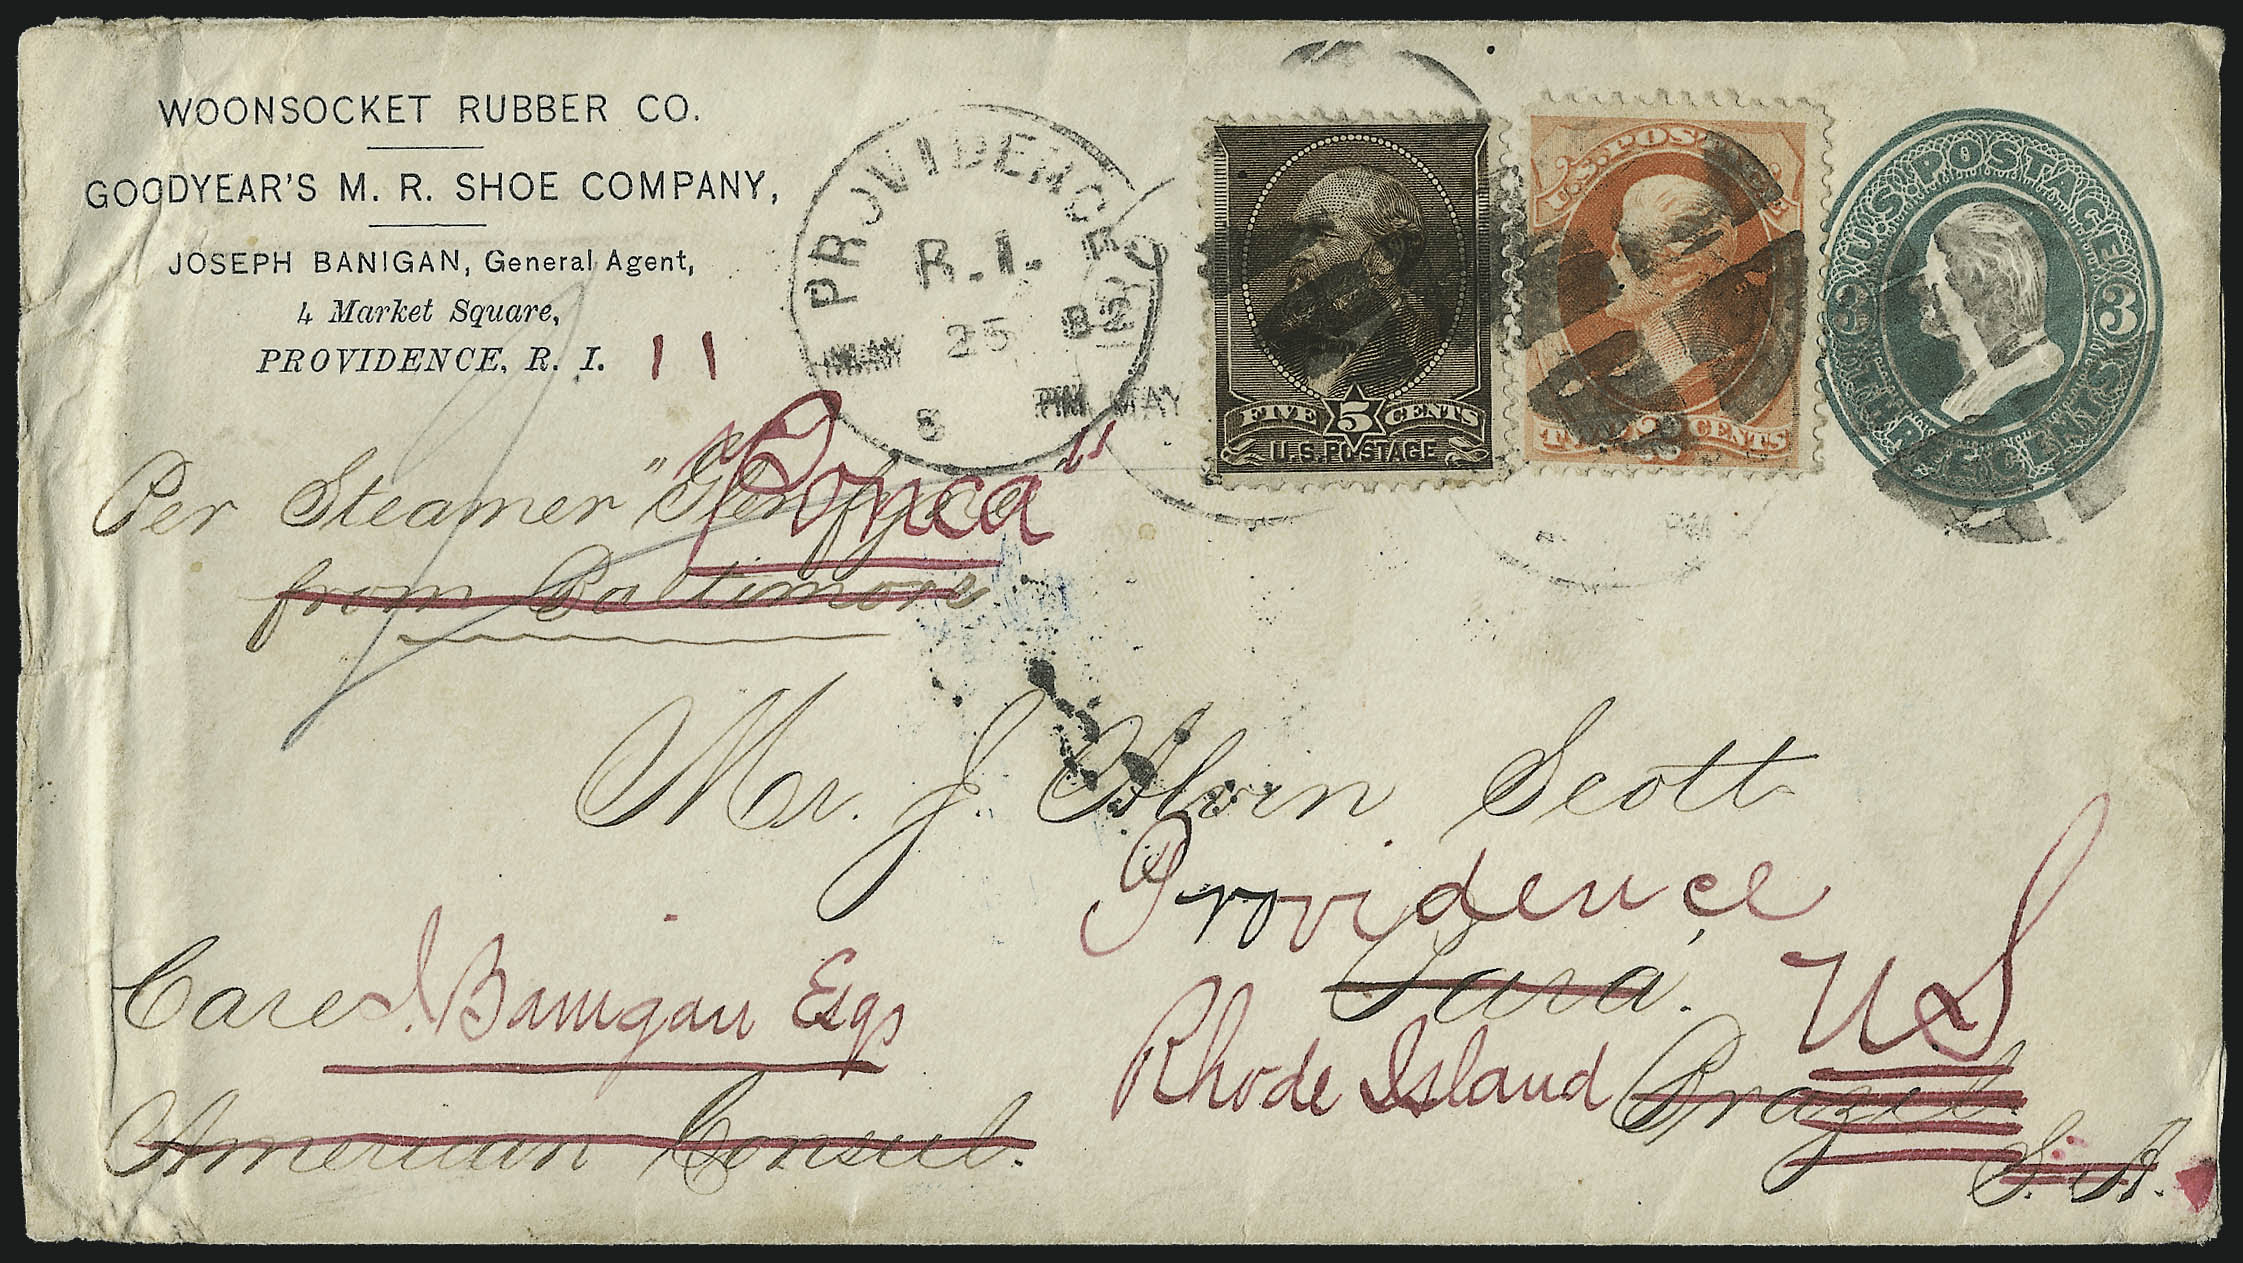 WOONSOCKET RUBBER CO.
GOODYEAR'S M. R. SHOE COMPANY,
JOSEPH BANIGAN, General Agent,
4 Market Square,
PROVIDENCE, R. I.
11
PROVIDENCE
R. I.
MAY 25 82
8 PM
MAY
FIVE 5 CENTS
U.S. POSTAGE
U.S. POSTAGE
TWO 2 CENTS
U.S. POSTAGE
3 3
THREE CENTS
PM
Per Steamer "
"Ponca"
from Baltimore
Mr. J. Alvin Scott
Providence
Para.
U S
Care J. Banigan Esqr
Rhode Island
Brazil.
American Consul.
S. A.